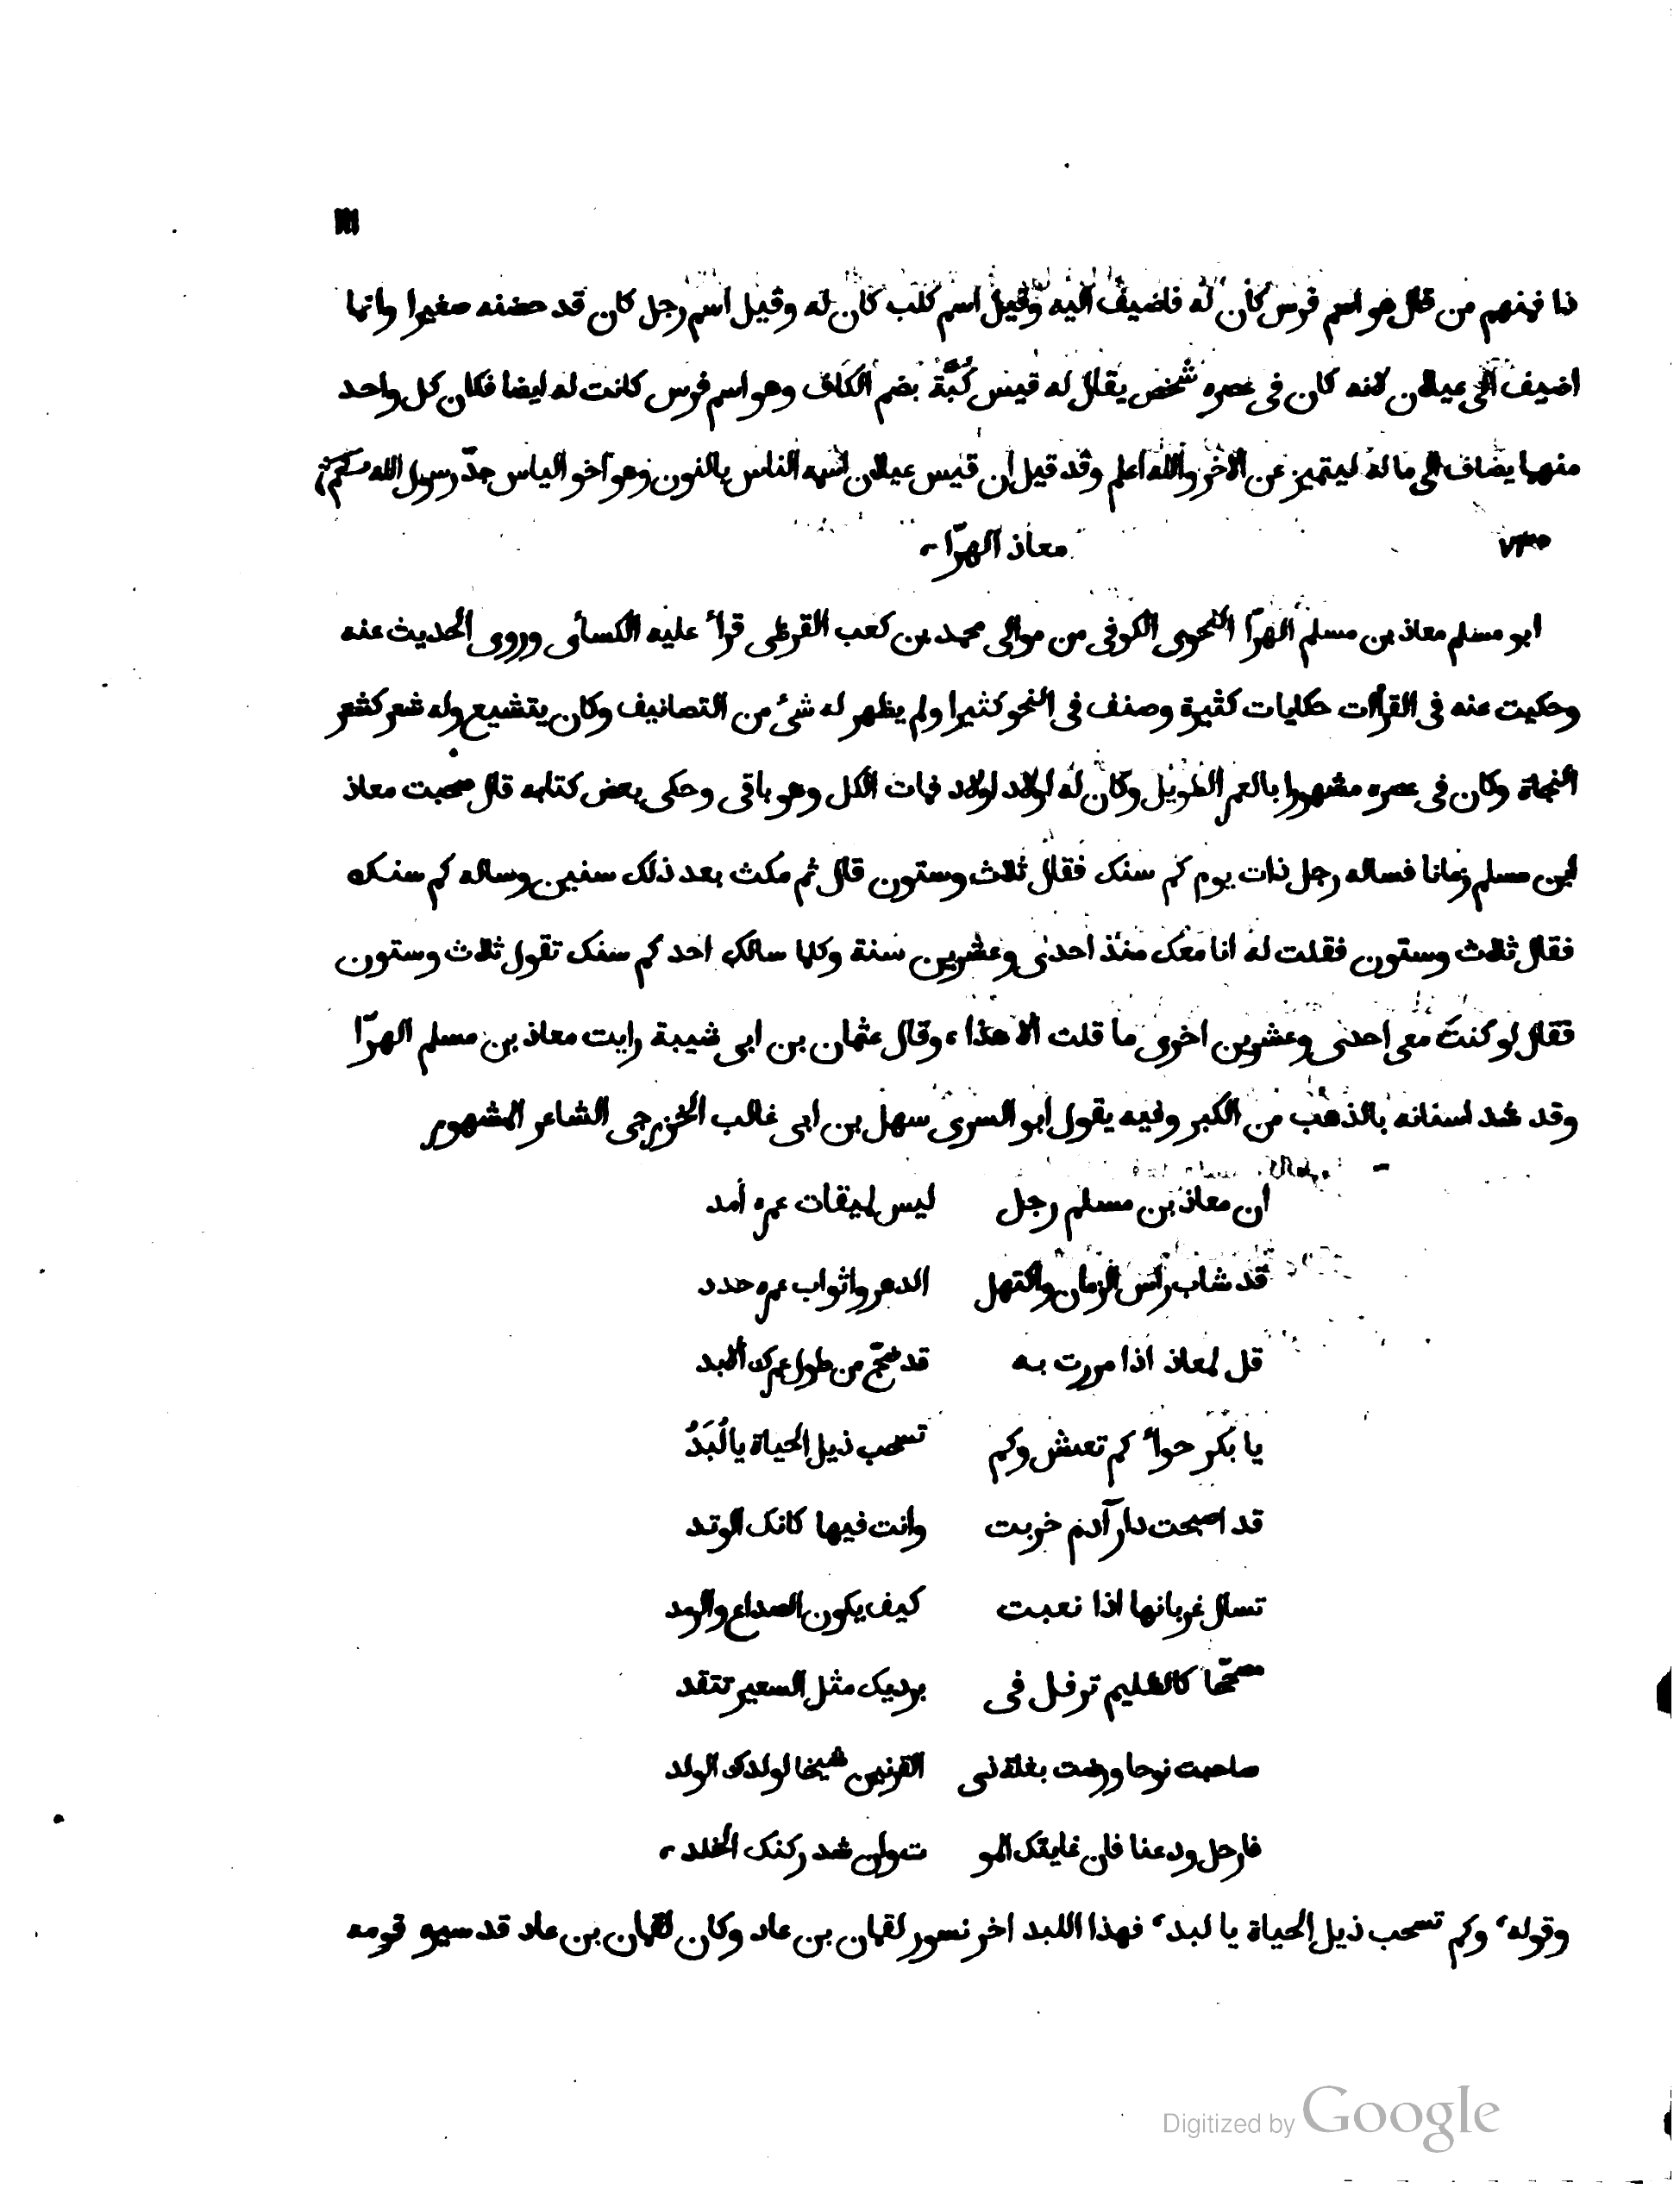 ١١١
نا فمنهم من قال هو اسم فرس كان له فاضيف اليه وقيل اسم كلب كان له وقيل اسم رجل كان قد حضنه صغيرا وانما
اضيف الى عيلان لانه كان فى عصره شخص يقال له قيس كُبَّة بضم الكاف وهو اسم فرس كانت له ايضا فكان كل واحد
منهما يضاف الى ما له ليتميز عن الاخر والله اعلم وقد قيل ان قيس عيلان اسمه الناس بالنون وهو اخو الياس جدّ رسول الله صلعم
معاذ الهرّا
ابو مسلم معاذ بن مسلم الهرّا النحوى الكوفى من موالى محمد بن كعب القرظى قرأ عليه الكسائى وروى الحديث عنه
وحكيت عنه فى القرأات حكايات كثيرة وصنف فى النحو كثيرا ولم يظهر له شئ من التصانيف وكان يتشيع وله شعر كشعر
النحاة وكان فى عصره مشهورا بالعمر الطويل وكان له اولاد اولاد فمات الكل وهو باقى وحكى بعض كتابه قال صحبت معاذ
ابن مسلم زمانا فساله رجل ذات يوم كم سنك فقال ثلاث وستون قال ثم مكث بعد ذلك سنين وساله كم سنك
فقال ثلاث وستون فقلت له انا معك منذ احدى وعشرين سنة وكلما سالك احد كم سنك تقول ثلاث وستون
فقال لو كنتَ معى احدى وعشرين اخرى ما قلت الا هذا، وقال عثمان بن ابى شيبة رايت معاذ بن مسلم الهرّا
وقد شد اسنانه بالذهب من الكبر وفيه يقول ابو السرى سهل بن ابى غالب الخزرجى الشاعر المشهور
ان معاذ بن مسلم رجل ليس لميقات عمره أمد
قد شاب راس الزمان واكتهل الدهر واثواب عمره جدد
قل لمعاذ اذا مررت به قد ضجّ من طول عمرك الابد
يا بكر حواء كم تعيش وكم تسحب ذيل الحياة يا لُبَدُ
قد اصبحت دار آدم خربت وانت فيها كانك الوتد
تسال غربانها اذا نعبت كيف يكون الصداع والرمد
مصححا كالظليم ترفل فى برديك مثل السعير تتقد
صاحبت نوحا ورضت بغلة ذى القرنين شيخا لولدك الولد
فارحل ودعنا فان غايتك المو ت وان شد ركنك الخلد
وقوله، وكم تسحب ذيل الحياة يا لبد، فهذا اللبد اخر نسور لقمان بن عاد وكان لقمان بن عاد قد سيره قومه
Digitized by Google